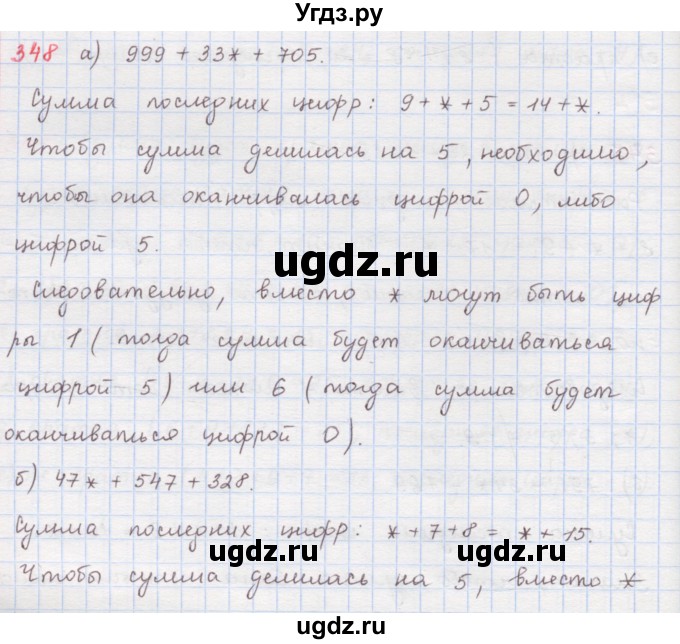 Угдз.ру
348 а) 999 + 33* + 705.
Сумма последних цифр: 9 + * + 5 = 14 + *.
Чтобы сумма делилась на 5, необходимо,
чтобы она оканчивалась цифрой 0, либо
цифрой 5.
ugdz.ru
Следовательно, вместо * могут быть циф
ры 1 (тогда сумма будет оканчиваться
цифрой 5) или 6 (тогда сумма будет
оканчиваться цифрой 0).
б) 47* + 547 + 328.
ugdz.ru
Сумма последних цифр: * + 7 + 8 = * + 15.
ugdz.ru
Чтобы сумма делилась на 5, вместо *
ugdz.ru